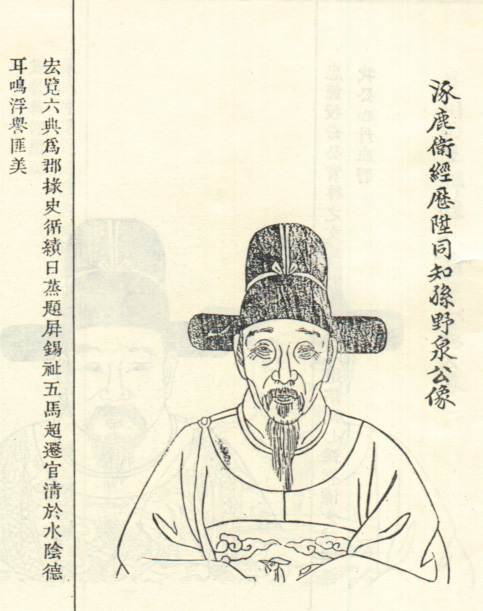 涿鹿衛經歷陞同知孫野泉公像
宏覽六典爲郡掾史循績日蒸題屏錫祉五馬超遷官清於水陰德
耳鳴浮譽匪美